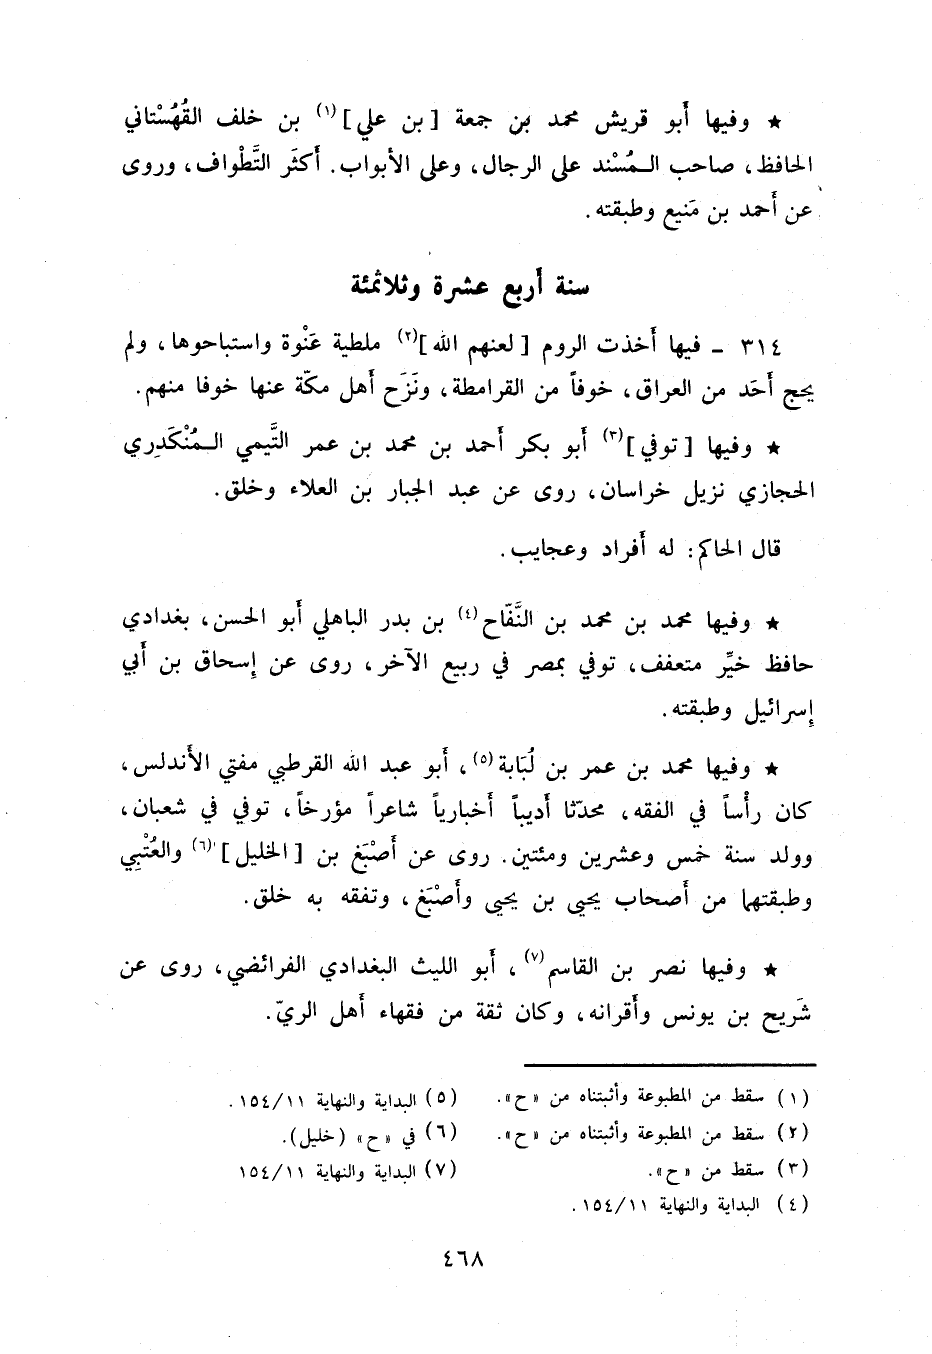 ★ وفيها أَبو قريش محمد بن جمعة [بن علي](١) بن خلف القُهُسْتاني
الحافظ، صاحب المُسْند على الرجال، وعلى الأبواب. أَكثَر التَّطْواف، وروى
عن أَحمد بن مَنيع وطبقته.
سنة أربع عشرة وثلاثمئة
٣١٤ ـ فيها أَخذت الروم [لعنهم الله](٢) ملطية عَنْوة واستباحوها، ولم
يحج أَحَد من العراق، خوفاً من القرامطة، ونَزَح أَهل مكّة عنها خوفا منهم.
★ وفيها [توفي](٣) أَبو بكر أَحمد بن محمد بن عمر التَّيمي المُنْكَدِري
الحجازي نزيل خراسان، روى عن عبد الجبار بن العلاء وخلق.
قال الحاكم: له أَفراد وعجايب.
★ وفيها محمد بن محمد بن النَّفّاح(٤) بن بدر الباهلي أَبو الحسن، بغدادي
حافظ خيِّر متعفف، توفي بمصر في ربيع الآخر، روى عن إسحاق بن أَبي
إسرائيل وطبقته.
★ وفيها محمد بن عمر بن لُبَابة(٥)، أَبو عبد الله القرطبي مفتي الأَندلس،
كان رأْساً في الفقه، محدّثا أَديباً أَخبارياً شاعراً مؤرخاً، توفي في شعبان،
وولد سنة خمس وعشرين ومئتين. روى عن أَصْبَغ بن [الخليل](٦) والعُتْبِي
وطبقتهما من أَصحاب يحيى بن يحيى وأَصْبَغ، وتفقه به خلق.
★ وفيها نصر بن القاسم(٧)، أَبو الليث البغدادي الفرائضي، روى عن
شَريح بن يونس وأَقرانه، وكان ثقة من فقهاء أَهل الريّ.
(١) سقط من المطبوعة وأثبتناه من «ح».
(٢) سقط من المطبوعة وأثبتناه من «ح».
(٣) سقط من «ح».
(٤) البداية والنهاية ١٥٤/١١.
(٥) البداية والنهاية ١٥٤/١١.
(٦) في «ح» (خليل).
(٧) البداية والنهاية ١٥٤/١١
٤٦٨